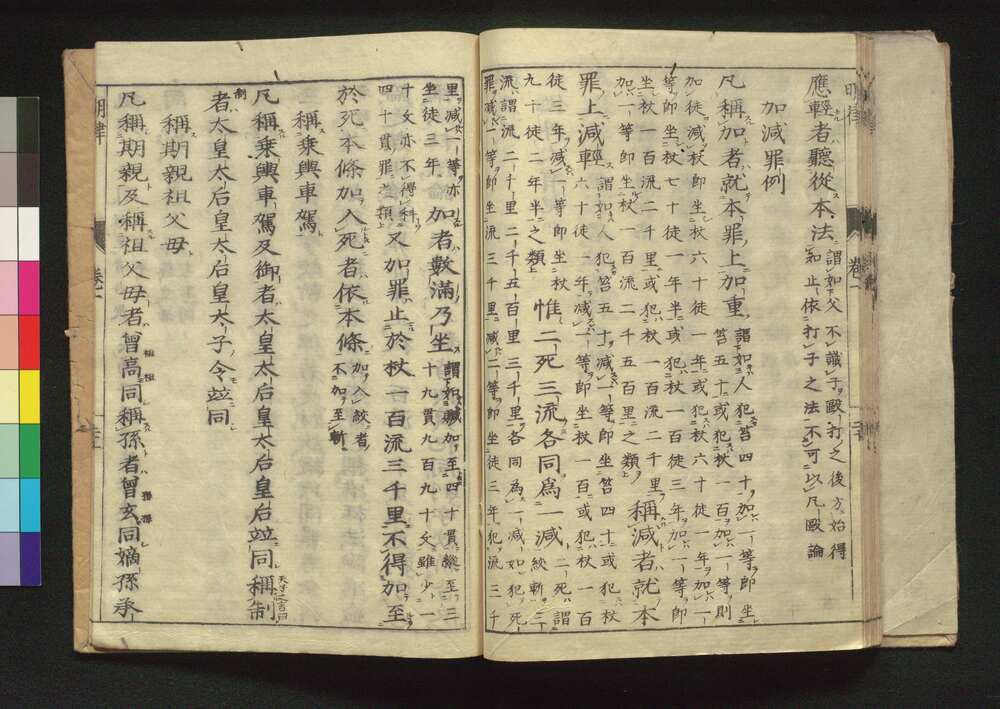 明律 卷一
應輕者聽從本法 謂如父不識子毆打之後方始得
知止依打子之法不可以凡毆論
加減罪例
凡稱加者就本罪上加重 謂如人犯笞四十加一等即坐
笞五十或犯杖一百加一等則
加徒減杖即坐杖六十徒一年或犯杖六十徒一年加一
等即坐杖七十徒一年半或犯杖一百徒三年加一等即
坐杖一百流二千里或犯杖一百流二千里
加一等即坐杖一百流二千五百里之類 稱減者就本
罪上減輕 謂如人犯笞五十減一等即坐笞四十或犯杖
六十徒一年減一等即坐杖一百或犯杖一百
徒三年減一等即坐杖
九十徒二年半之類 惟二死三流各同爲一減 二死謂
絞斬三
流謂流二千里二千五百里三千里各同為一減如犯死
罪減一等即坐流三千里減二等即坐徒三年犯流三千
里減一等亦
坐徒三年 加者數滿乃坐 謂如贓加至四十貫縱至三
十九貫九百九十文雖少一
十文亦不得科
四十貫罪之類 又加罪止於杖一百流三千里不得加至
於死本條加入死者依本條 加入絞者
不加至斬
稱乘輿車駕
凡稱乘輿車駕及御者太皇太后皇太后皇后竝同稱制 天子之言曰
制
者太皇太后皇太后皇太子令竝同
稱期親祖父母
凡稱期親及稱祖父母者曾高同稱孫者曾玄同嫡孫承
祖 祖
孫 孫
明律 卷一